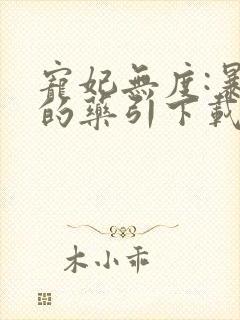 寵妃無度:暴
的藥引下載
木小乖